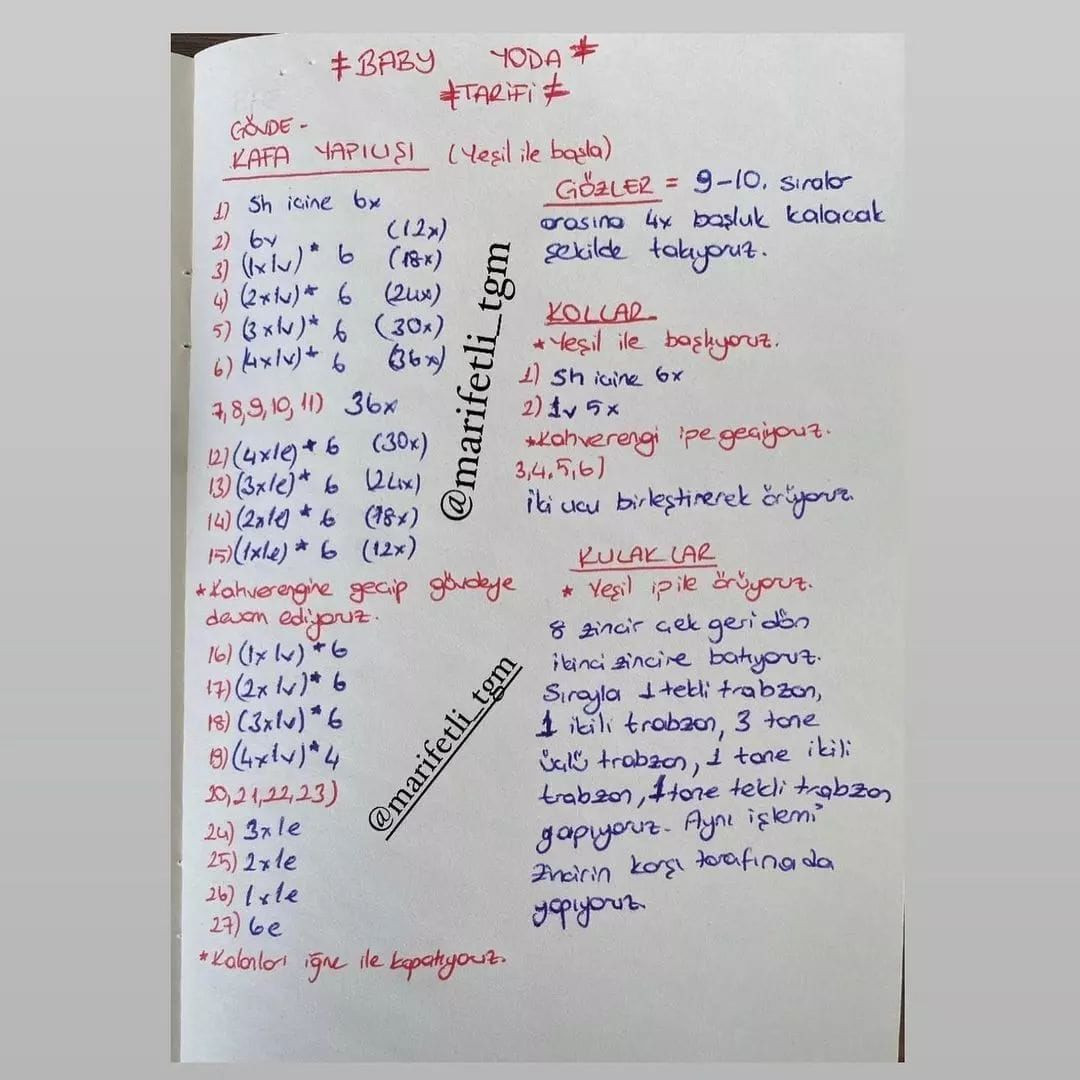 ≠BABY YODA≠
≠TARİFİ≠
GÖVDE -
KAFA YAPILIŞI (Yeşil ile başla)
1) Sh icine 6x
2) 6v (12x)
3) (1x1v)* 6 (18x)
4) (2x1v)* 6 (24x)
5) (3x1v)* 6 (30x)
6) (4x1v)* 6 (36x)
7,8,9,10,11) 36x
12) (4x1e)* 6 (30x)
13) (3x1e)* 6 (24x)
14) (2x1e) * 6 (18x)
15) (1x1e) * 6 (12x)
*Kahverengine geçip gövdeye
devam ediyoruz.
16) (1x 1v) *6
17) (2x 1v)* 6
18) (3x1v)*6
19) (4x1v)*4
20,21,22,23)
24) 3x1e
25) 2x1e
26) 1x1e
27) 6e
*Kalanları iğne ile kapatıyoruz.
GÖZLER = 9-10. sıralar
arasına 4x başluk kalacak
şekilde takıyoruz.
KOLLAR
* Yeşil ile başlıyoruz.
1) Sh icine 6x
2) 1v 5x
*Kahverengi ipe geçiyoruz.
3,4,5,6)
İki ucu birleştirerek örüyoruz.
KULAKLAR
* Yeşil ip ile örüyoruz.
8 zincir çek geri dön
ikinci zincire batıyoruz.
Sırayla 1 tekli trabzan,
1 ikili trabzan, 3 tane
üçlü trabzan, 1 tane ikili
trabzan, 1 tane tekli trabzan
yapıyoruz. Aynı işlemi
zincirin karşı tarafına da
yapıyoruz.
@marifetli_tgm
@marifetli_tgm